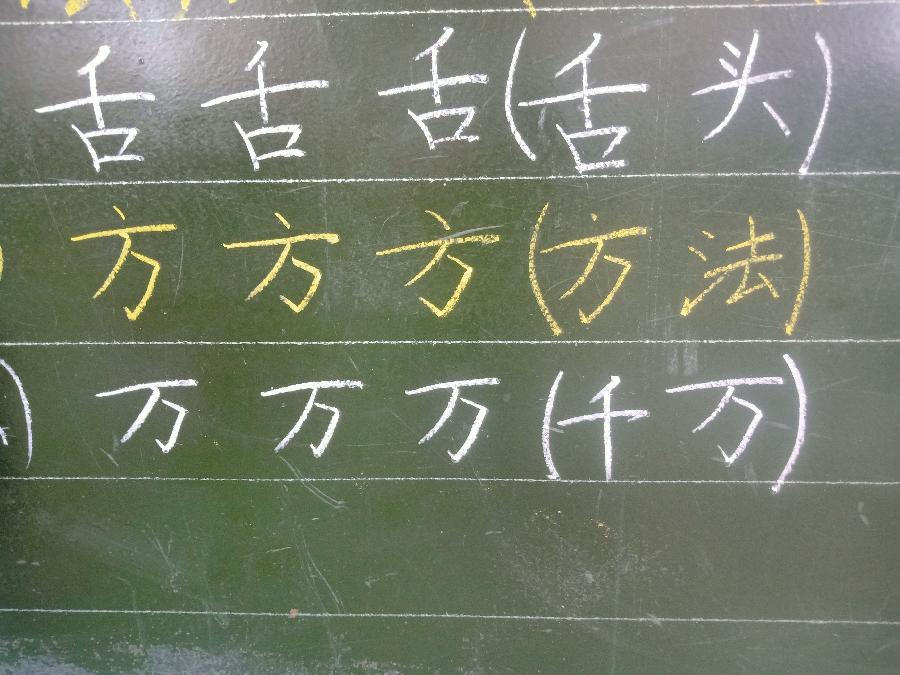 舌 舌 舌(舌 头)
) 方 方 方(方 法)
) 万 万 万(千 万)